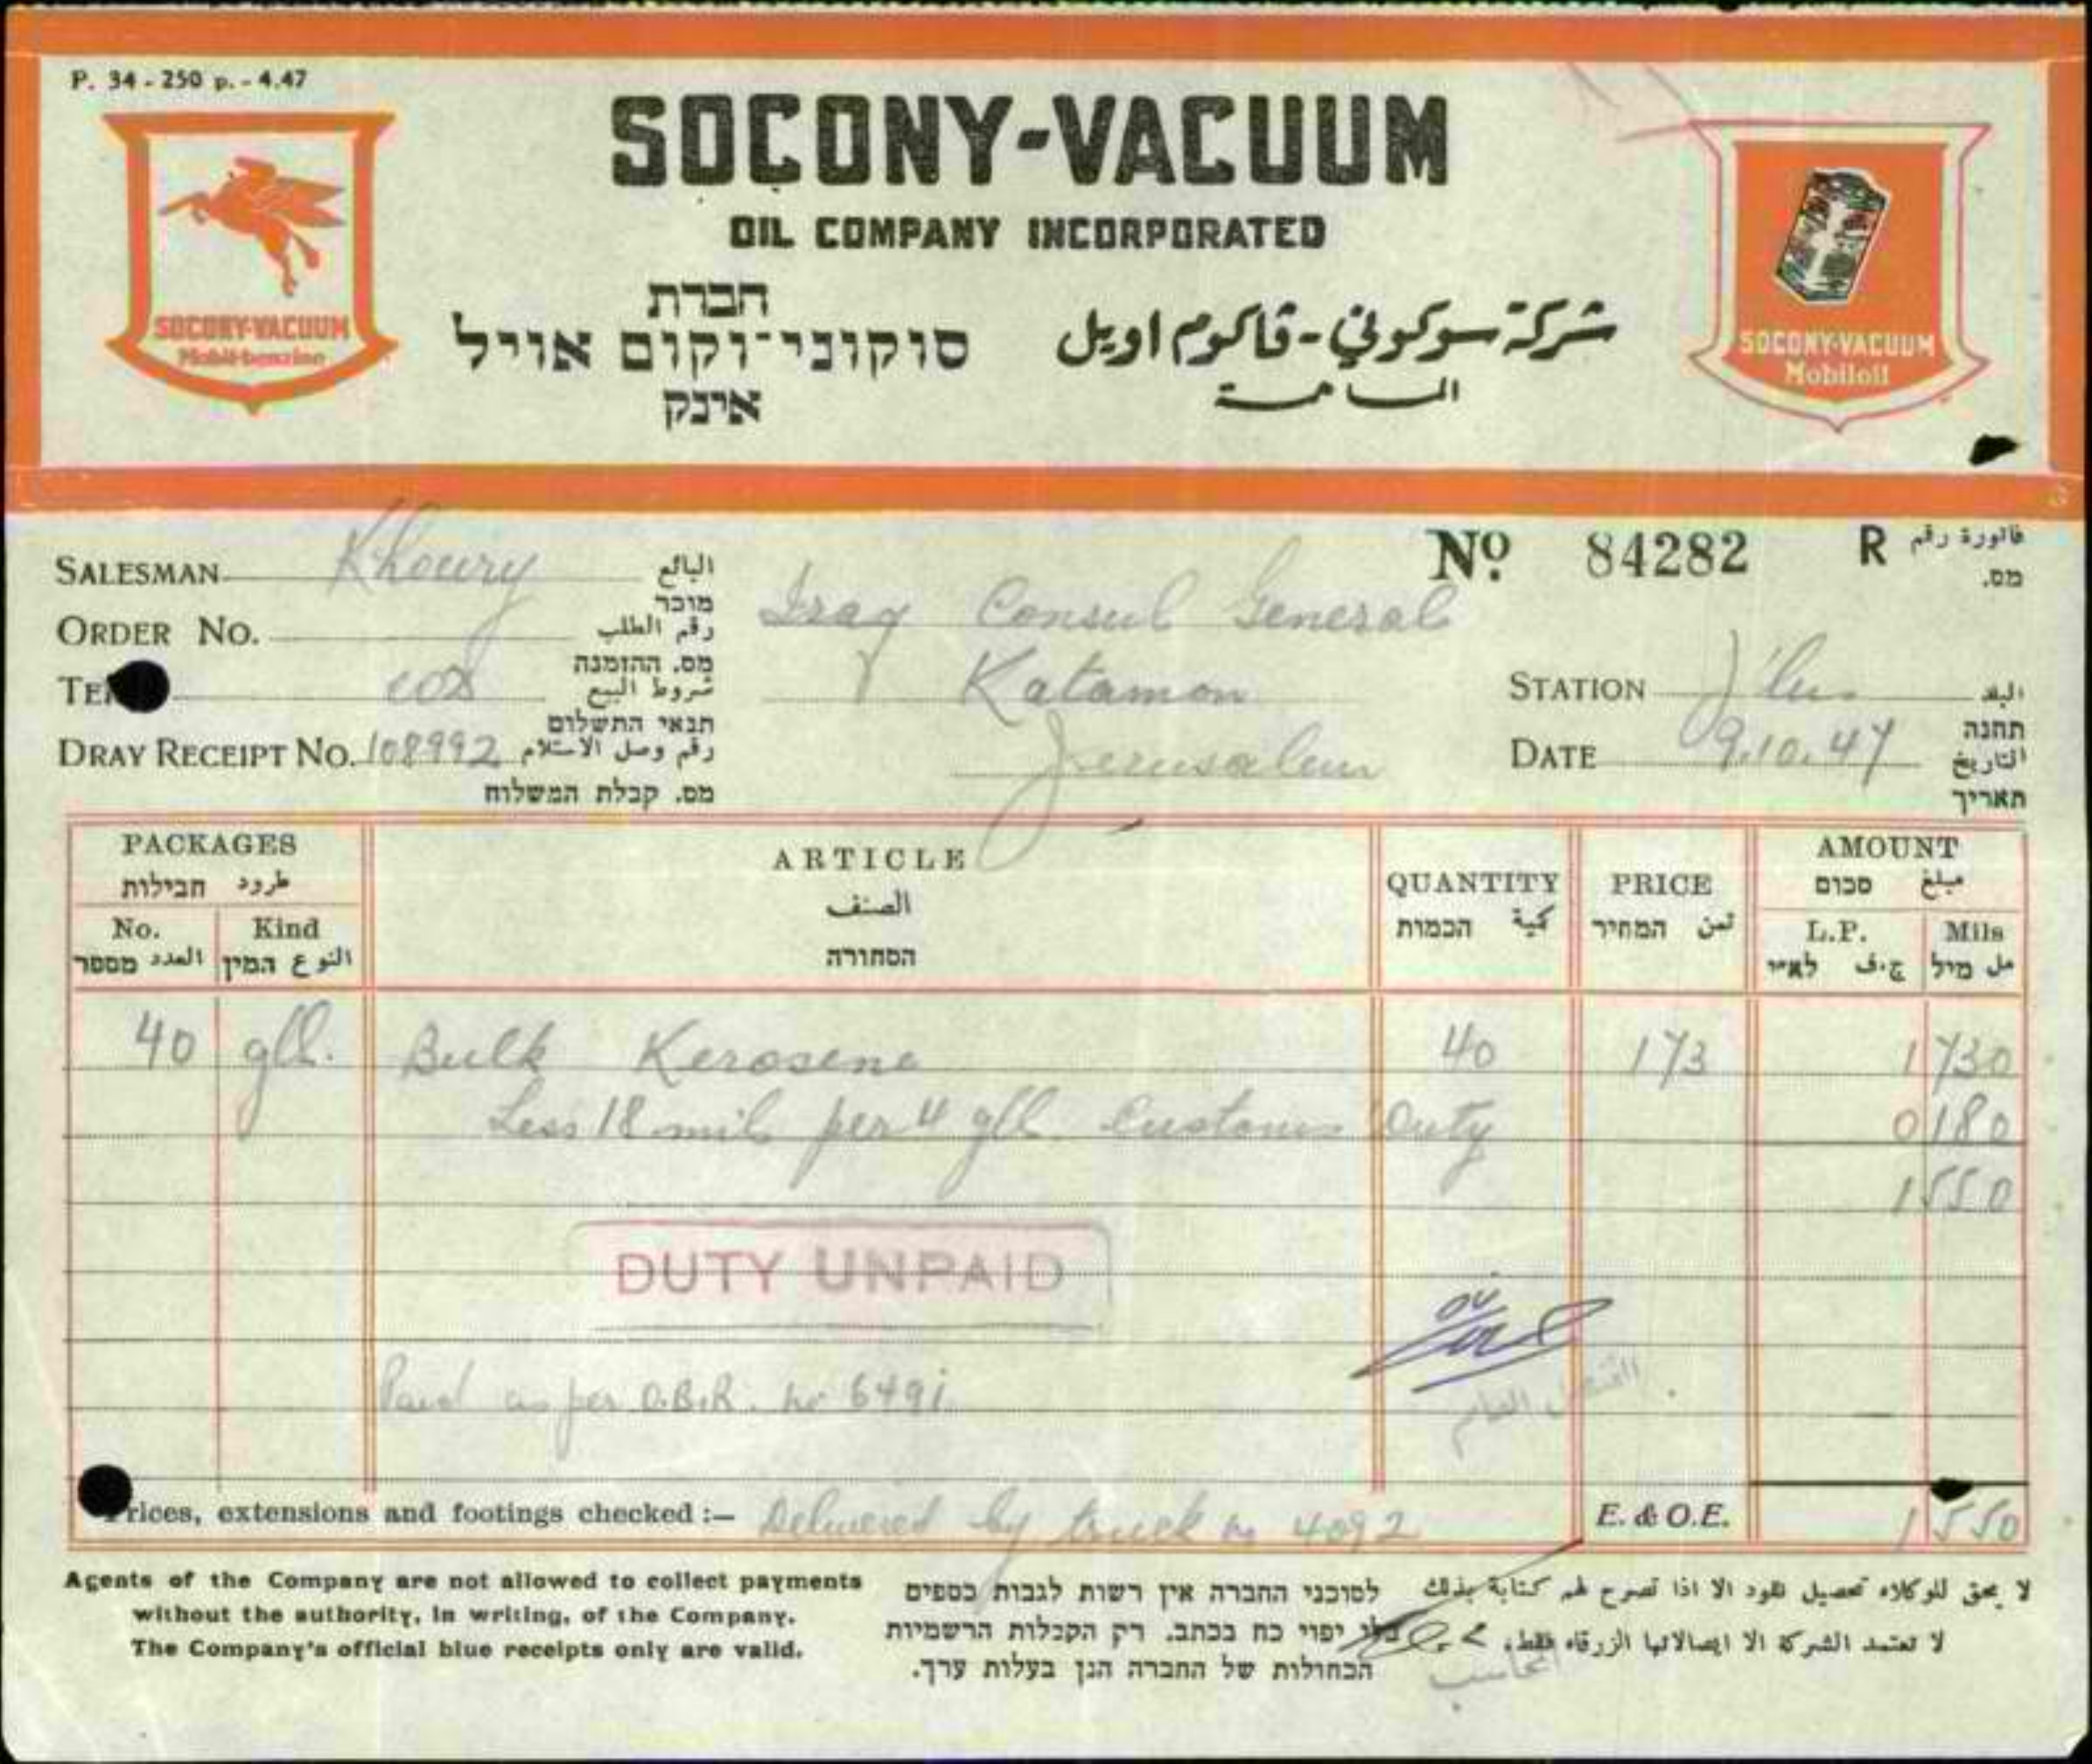 P. 34 - 250 p. - 4.47
SOCONY-VACUUM
OIL COMPANY INCORPORATED
חברת
סוקוני־וקום אויל
אינק
شركة سوكوني - ڤاكوم اويل
المساهمة
SOCONY-VACUUM
Mobil-benzine
SOCONY-VACUUM
Mobiloil
Nº 84282 R فاتورة رقم
מס.
SALESMAN Khoury البائع
מוכר
ORDER No. رقم الطلب
מס. ההזמנה
TE شروط البيع
תנאי התשלום
DRAY RECEIPT No. 108992 رقم وصل الاستلام
מס. קבלת המשלוח
Iraq Consul General
Katamon
Jerusalem
STATION J'lm البلد
תחנה
DATE 9.10.47 التاريخ
תאריך
PACKAGES
طرود חבילות
No. Kind
العدد מספר النوع המין
ARTICLE
الصنف
הסחורה
QUANTITY
كمية הכמות
PRICE
ثمن המחיר
AMOUNT
مبلغ סכום
L.P. Mils
ج.ف לא"י مل מיל
40 gll. Bulk Kerosene 40 173 1 730
Less 18 mils per 4 gll. Customs Duty 0 180
1 550
DUTY UNPAID
Paid as per O.B.R. no 6491
القنصل العام
Prices, extensions and footings checked :— Delivered by truck no 4092 E. & O.E. 1 550
Agents of the Company are not allowed to collect payments
without the authority, in writing, of the Company.
The Company's official blue receipts only are valid.
לסוכני החברה אין רשות לגבות כספים
בלי יפוי כח בכתב. רק הקבלות הרשמיות
הכחולות של החברה הנן בעלות ערך.
لا يحق للوكلاء تحصيل نقود الا اذا تصرح لهم كتابة بذلك
لا تعتمد الشركة الا ايصالاتها الزرقاء فقط.
المحاسب